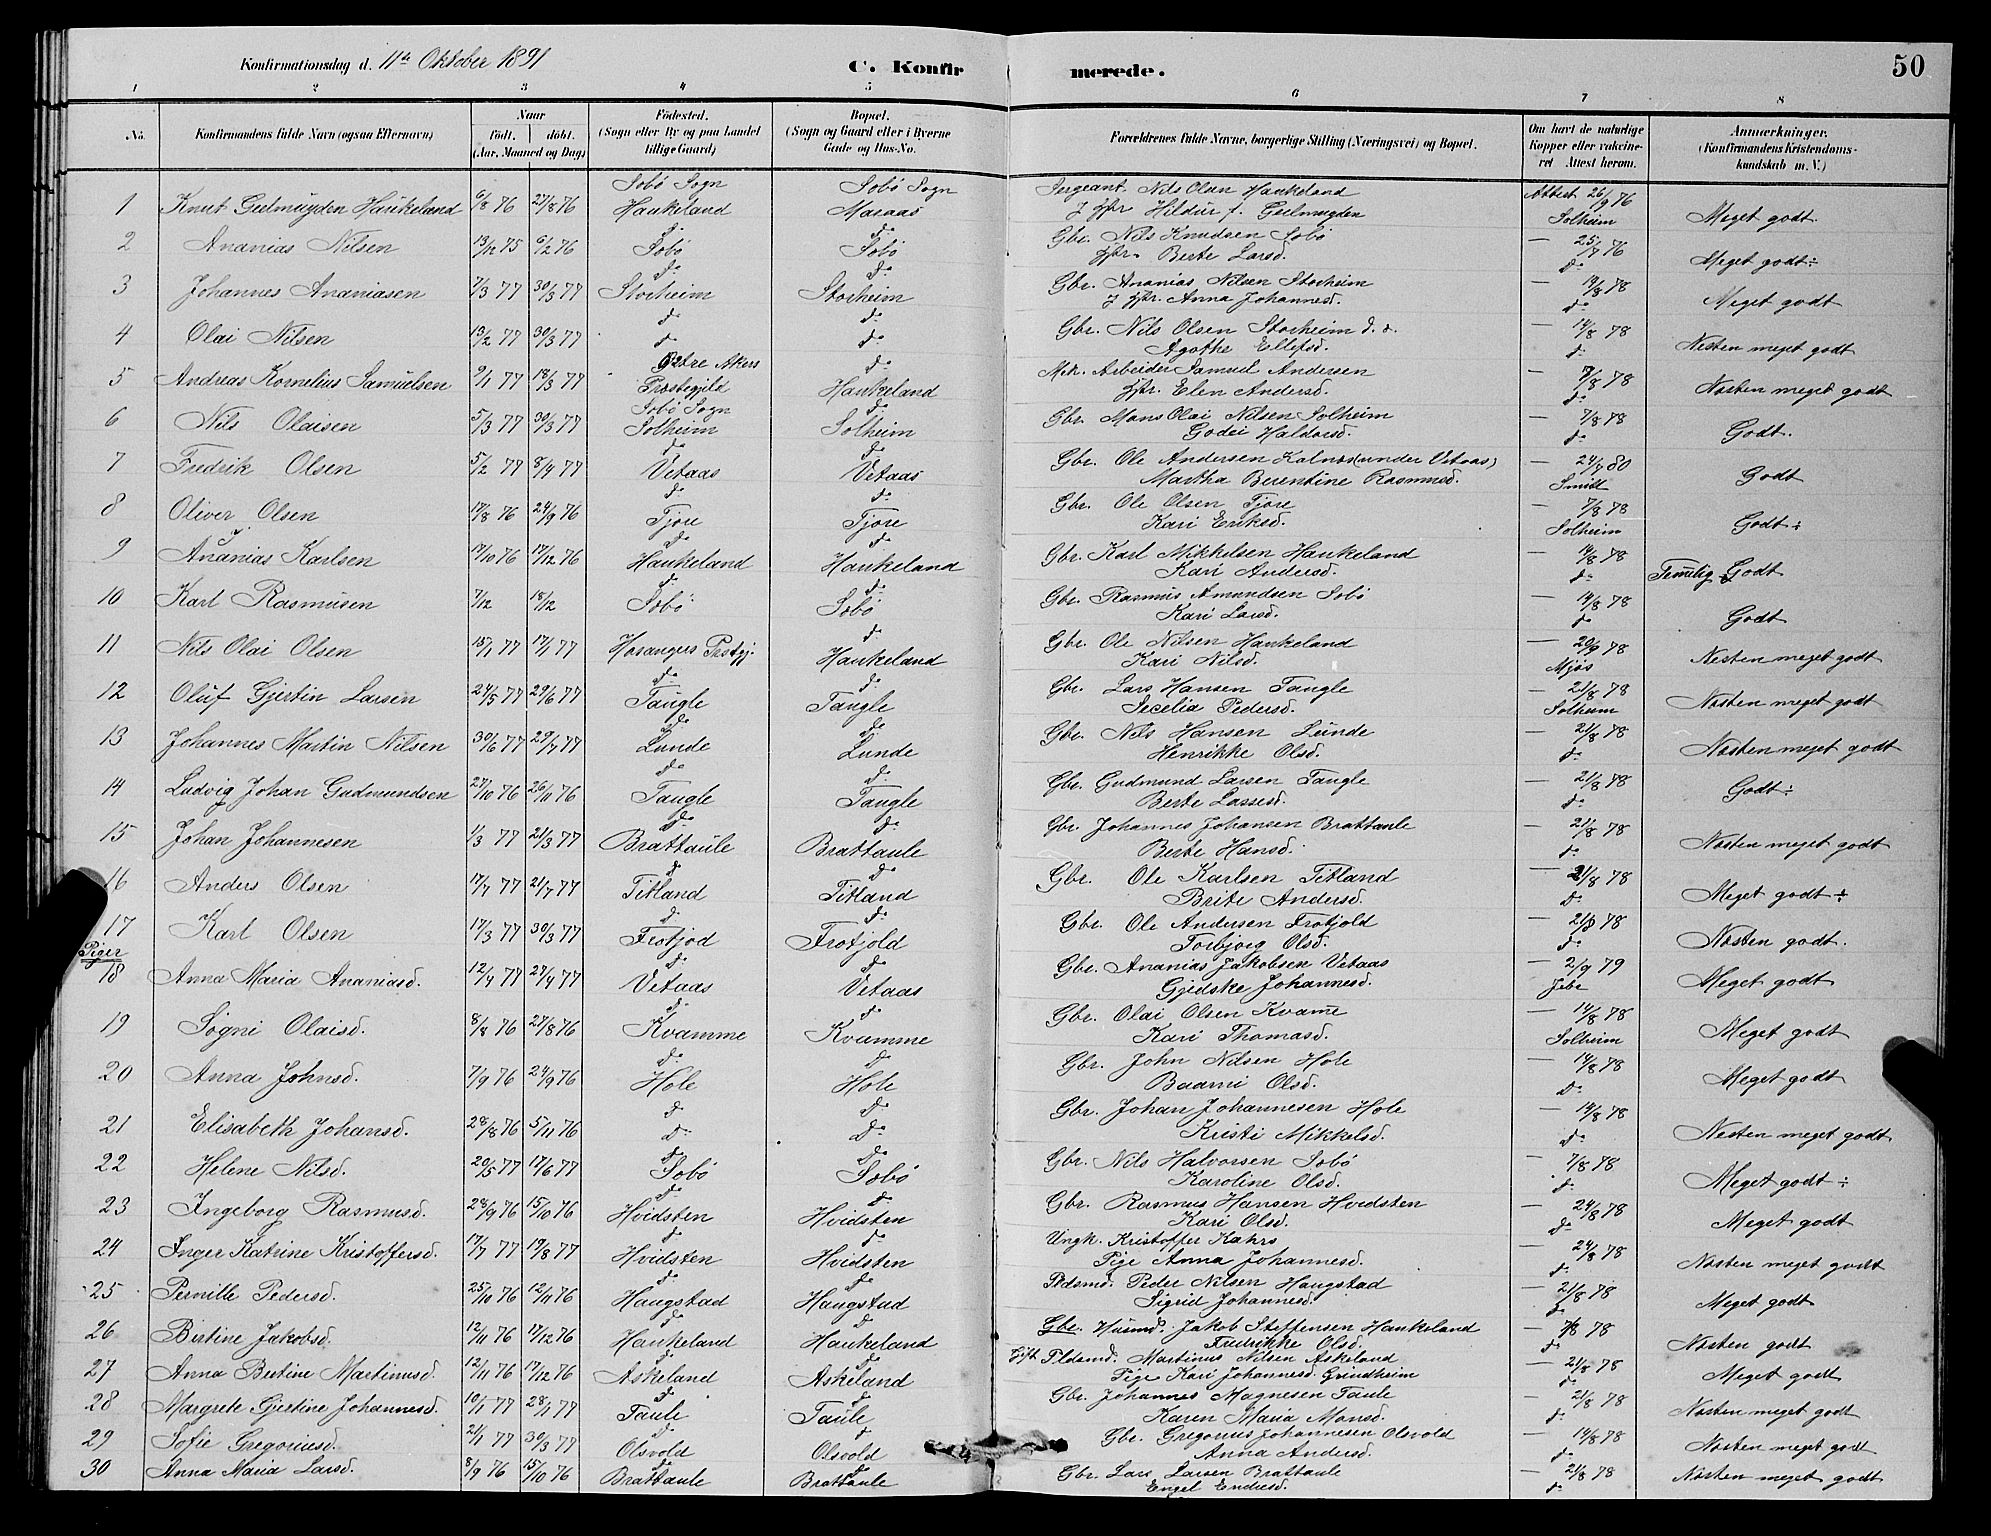 Konfirmationsdag d. 11te Oktober 1891 C. Konfirmerede. 50
1 2 3 4 5 6 7 8
No. Konfirmandens fulde Navn (ogsaa Efternavn) Naar født. døbt. (Aar, Maaned og Dag) Fødested. (Sogn eller By og paa Landet tillige Gaard) Bopæl. (Sogn og Gaard eller i Byerne Gade og Hus-No. Forældrenes fulde Navne, borgerlige Stilling (Næringsvei) og Bopæl. Om havt de naturlige Kopper eller vakcineret Attest herom. Anmærkninger. (Konfirmandens Kristendomskundskab m. V.)
1 Knut Geelmuyden Haukeland 6/8 76 27/8 76 Sobø Sogn Haukeland Sobø Sogn Masaas Sergeant Nils Olsen Haukeland Hildur f. Geelmuyden Attest 26/9 76 Solheim Meget godt.
2 Ananias Nilsen 13/12 75 6/2 76 do Sobø do Sobø Gbr. Nils Knudsen Sobø Berte Larsd. — 25/7 76 do Meget godt ÷
3 Johannes Ananiasen 7/3 77 30/3 77 do Storheim do Storheim Gbr. Ananias Nilsen Storheim Anna Johannesd. — 14/8 78 do Meget godt
4 Olai Nilsen 13/2 77 30/3 77 do do Gbr. Nils Olsen Storheim Agathe Ellefsd. — 14/8 78 do Nesten meget godt
5 Andreas Kornelius Samuelsen 9/1 77 18/3 77 Østre Akers Præstegjeld do Haukeland Arbeider Samuel Andersen Elen Andersd. — 7/8 78 do Næsten meget godt
6 Nils Olaisen 5/3 77 30/3 77 Sobø Sogn Solheim do Solheim Gbr. Mons Olai Nilsen Solheim Godei Haldorsd. — 7/8 78 do Godt.
7 Fredrik Olsen 5/2 77 8/4 77 do Vetaas do Vetaas Gbr. Ole Andersen Kalnæs (under Vetaas) Martha Berentine Rasmusd. — 24/7 80 Smidt Godt
8 Oliver Olsen 17/8 76 24/9 76 do Tjore do Tjore Gbr. Ole Olsen Tjore Kari Eriksd. — 7/8 78 Solheim Godt ÷
9 Ananias Karlsen 17/10 76 17/12 76 do Haukeland do Haukeland Gbr. Karl Mikkelsen Haukeland Kari Andersd. — 14/8 78 do Temelig Godt
10 Karl Rasmusen 7/12 18/12 do Sobø do Sobø Gbr. Rasmus Amundsen Sobø Kari Larsd. — 14/8 78 do Godt
11 Nils Olai Olsen 15/1 77 17/1 77 Hosangers Prstgj. do Haukeland Gbr. Ole Nilsen Haukeland Kari Nilsd. — 20/9 78 Mjøs Nesten meget godt
12 Oluf Gjertin Larsen 24/5 77 29/6 77 do Taugle do Taugle Gbr. Lars Hansen Taugle Secelia Pedersd. — 21/8 78 Solheim Næsten meget godt
13 Johannes Martin Nilsen 30/6 77 29/7 77 do Lunde do Lunde Gbr. Nils Hansen Lunde Henrikke Olsd. — 21/8 78 do Næsten meget godt
14 Ludvig Johan Gudmundsen 27/10 76 26/11 76 do Taugle do Taugle Gbr. Gudmund Larsen Taugle Berte Lassesd. — 21/8 78 do Godt ÷
15 Johan Johannesen 1/3 77 21/3 77 do Brattaule do Brattaule Gbr. Johannes Johansen Brattaule Berte Hansd. — 21/8 78 do Næsten meget godt
16 Anders Olsen 17/7 77 21/7 77 do Titland do Titland Gbr. Ole Karlsen Titland Brite Andersd. — 21/8 78 do Meget godt ÷
17 Karl Olsen 17/3 77 30/3 77 do Frotjod do Frotjold Gbr. Ole Andersen Frotjold Torbjorg Olsd. — 21/8 78 do Næsten godt.
Piger
18 Anna Maria Ananiasd. 12/4 77 27/4 77 do Vetaas do Vetaas Gbr. Ananias Jakobsen Vetaas Gjedske Johannesd. — 2/9 79 Jebe Meget godt
19 Søgni Olaisd. 8/8 76 27/8 76 do Kvamme do Kvamme Gbr. Olai Olsen Kvame Kari Thomasd. — 14/8 78 Solheim Meget godt
20 Anna Johnsd. 7/9 76 24/9 76 do Hole do Hole Gbr. John Nilsen Hole Baarni Olsd. — 14/8 78 do Meget godt
21 Elisabeth Johansd. 28/8 76 5/11 76 do do do do Gbr. Johan Johannesen Hole Kristi Mikkelsd. — 14/8 78 do Nesten meget godt
22 Helene Nilsd. 20/5 77 17/6 77 do Sobø do Sobø Gbr. Nils Halvorsen Sobø Karoline Olsd. — 7/8 78 do Meget godt ÷
23 Ingeborg Rasmusd. 28/9 76 15/10 76 do Hvidsten do Hvidsten Gbr. Rasmus Hansen Hvidsten Kari Olsd. — 24/8 78 do Meget godt
24 Inger Katrine Kristoffersd. 17/7 77 19/8 77 do Hvidsten do Hvidsten Ungk. Kristoffer Kahrs Pige Anna Johannesd. — 24/8 78 do Næsten meget godt
25 Pernille Pedersd. 25/10 76 12/11 76 do Haugstad do Haugstad Pldsmd. Peder Nilsen Haugstad Sigrid Johannesd. — 21/8 78 do Meget godt
26 Bertine Jakobsd. 12/11 76 17/12 76 do Haukeland do Haukeland Gbr. Husmd. Jakob Steffensen Haukeland Fredrikke Olsd. — 7/8 78 do Næsten godt
27 Anna Bertine Martinusd. 12/11 76 17/12 76 do Askeland do Askeland Gift Pldsmd. Martinus Nilsen Askeland Pige Kari Johannesd. Grindheim — 21/8 78 do Meget godt
28 Margrete Gjertine Johannesd. 10/1 77 28/1 77 do Taule do Taule Gbr. Johannes Magnesen Taule Karen Maria Monsd. — 21/8 78 do Næsten meget godt
29 Sofie Gregoriusd. 2/1 77 30/3 77 do Olsvold do Olsvold Gbr. Gregorius Johannesen Olsvold Anna Andersd. — 14/8 78 do Næsten meget godt
30 Anna Maria Larsd. 8/9 76 15/10 76 do Brattaule do Brattaule Gbr. Lars Larsen Brattaule Engel Endresd. — 21/8 78 do Næsten meget godt